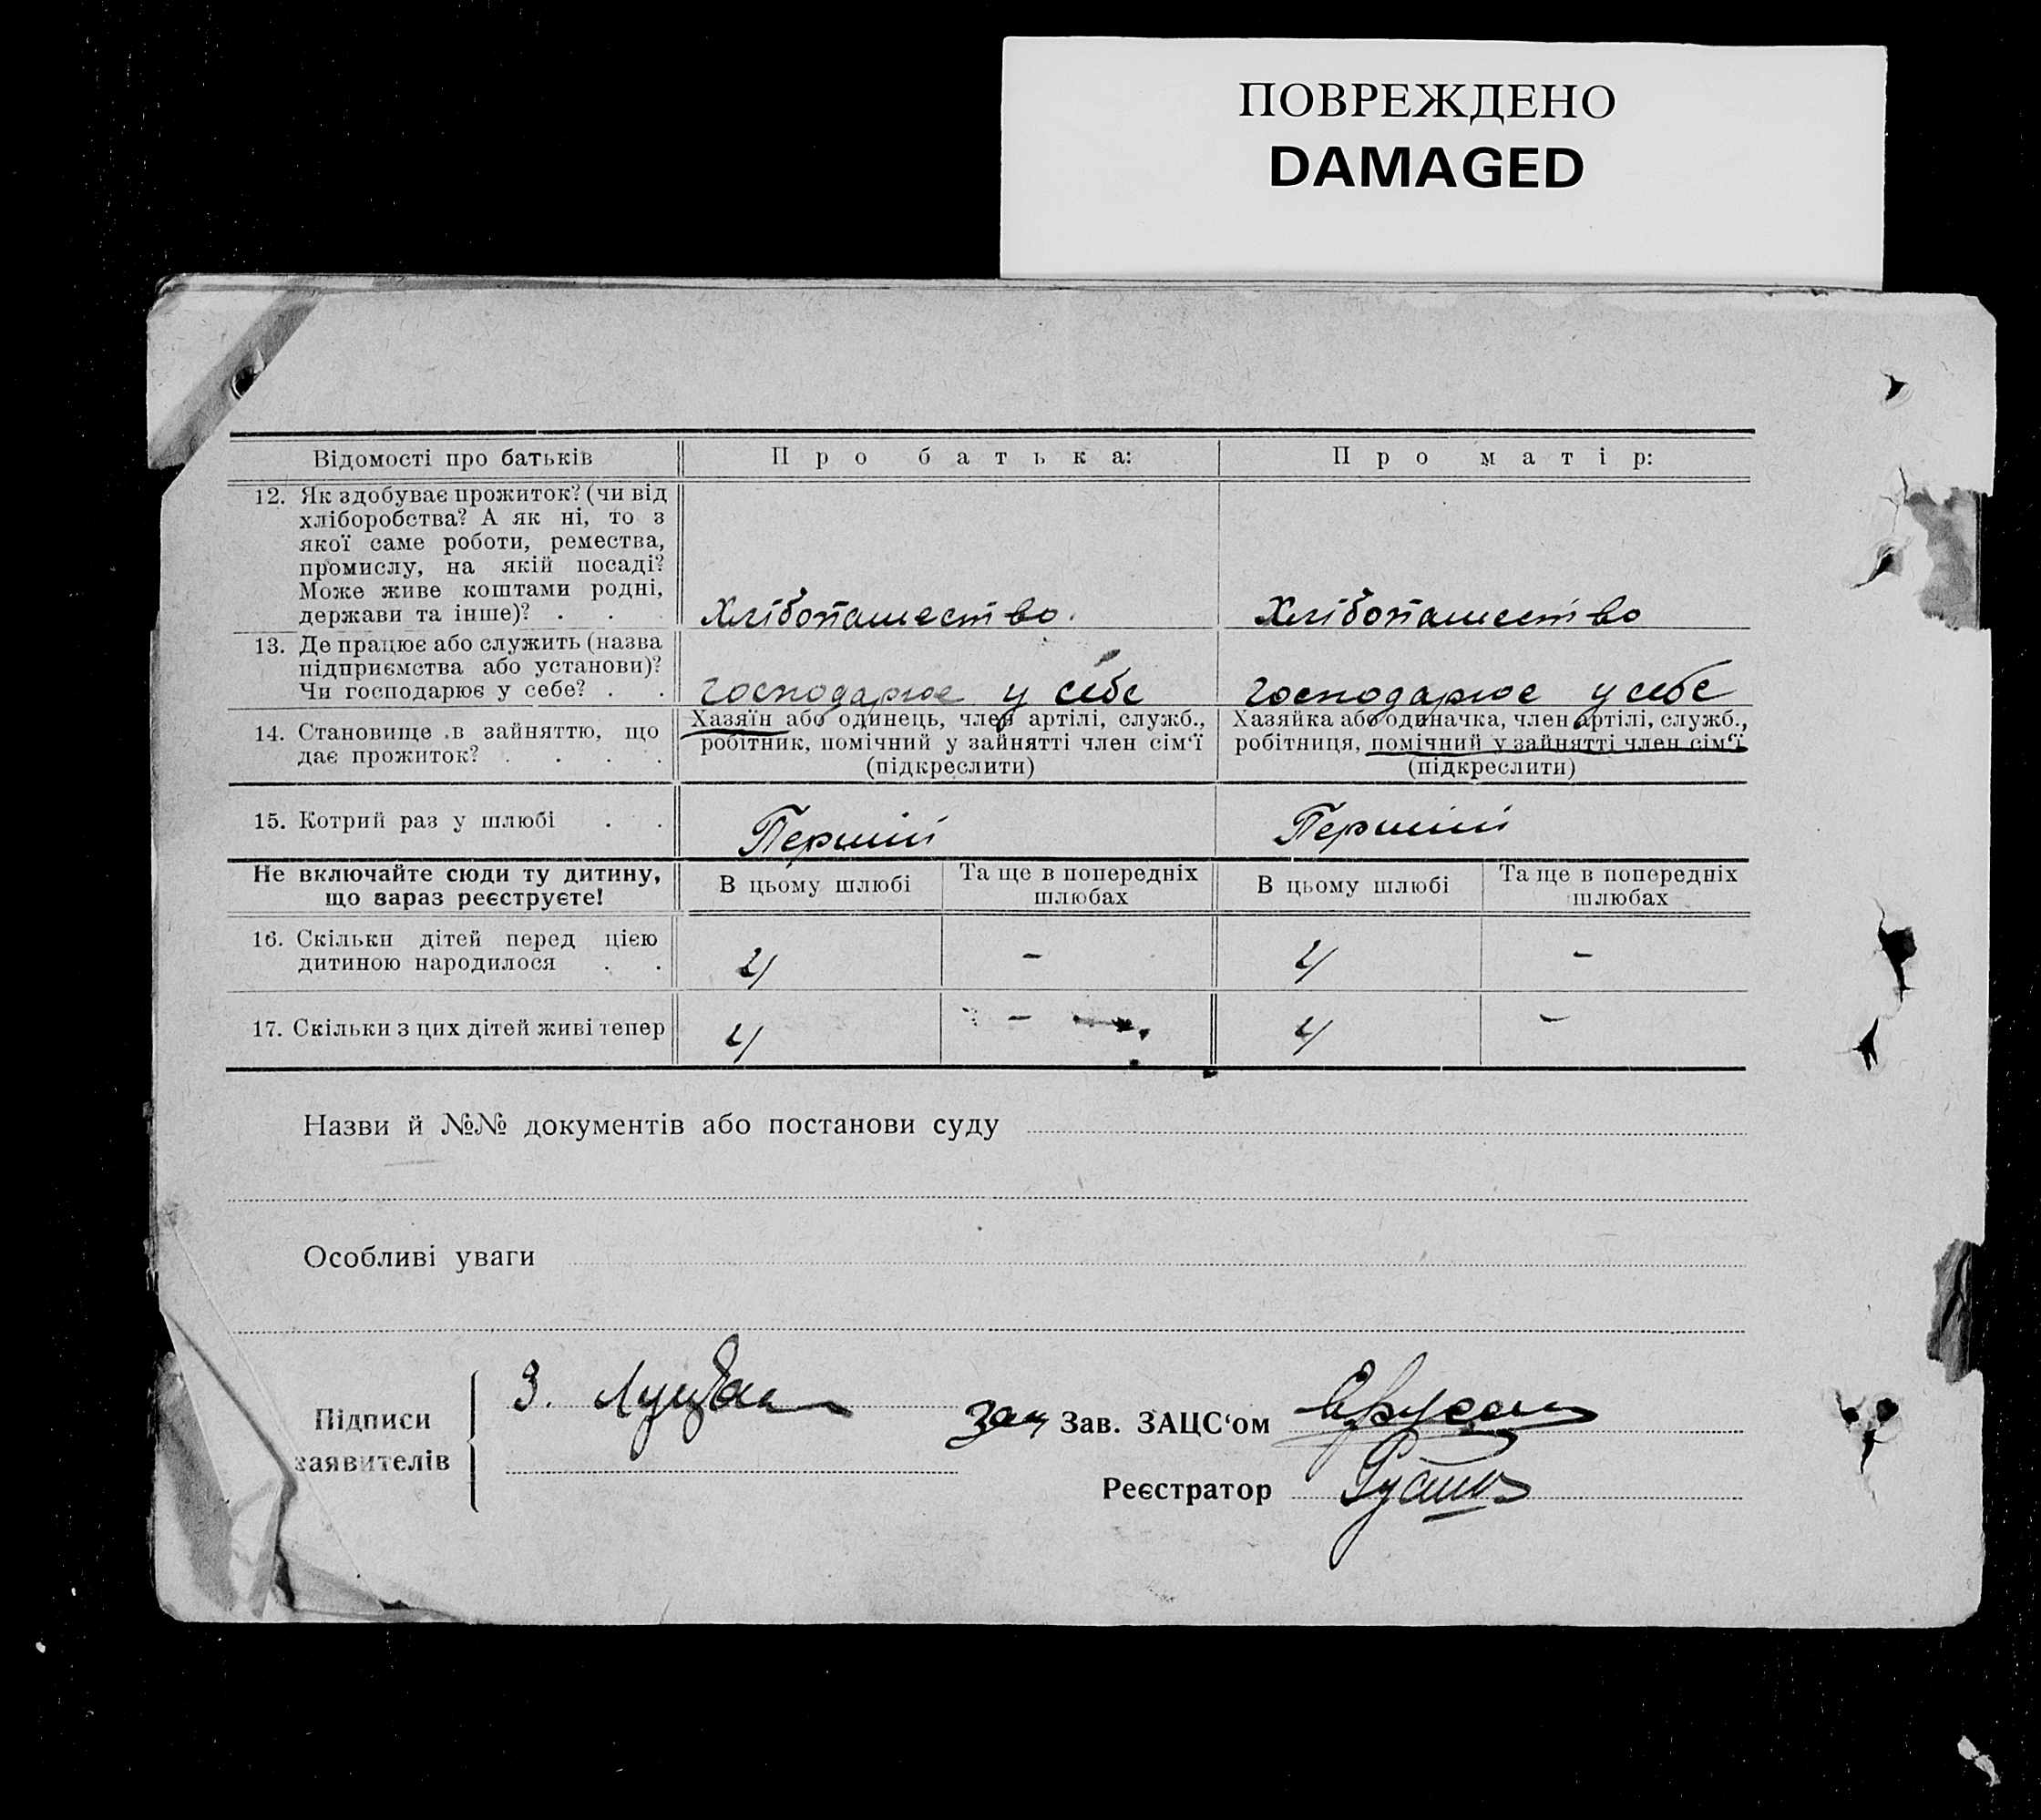 ПОВРЕЖДЕНО
DAMAGED
Відомості про батьків
Про батька:
Про матір:
12. Як здобуває прожиток? (чи від
хліборобства? А як ні, то з
якої саме роботи, ремества,
промислу, на якій посаді?
Може живе коштами родні,
держави та інше)? . . .
Хлібопашество.
Хлібопашество
13. Де працює або служить (назва
підприємства або установи)?
Чи господарює у себе? . .
господарює у себе
господарює у себе
14. Становище в зайняттю, що
дає прожиток? . . . .
Хазяїн або одинець, член артілі, служб.,
робітник, помічний у зайнятті член сім‘ї
(підкреслити)
Хазяйка або одиначка, член артілі, служб.,
робітниця, помічний у зайнятті член сім‘ї
(підкреслити)
15. Котрий раз у шлюбі . .
Перший
Перший
Не включайте сюди ту дитину,
що зараз реєструєте!
В цьому шлюбі
Та ще в попередніх
шлюбах
В цьому шлюбі
Та ще в попередніх
шлюбах
16. Скільки дітей перед цією
дитиною народилося . .
4
-
4
-
17. Скільки з цих дітей живі тепер
4
-
4
-
Назви й №№ документів або постанови суду
Особливі уваги
Підписи
заявителів
З.
Зав. ЗАЦС‘ом
Реєстратор